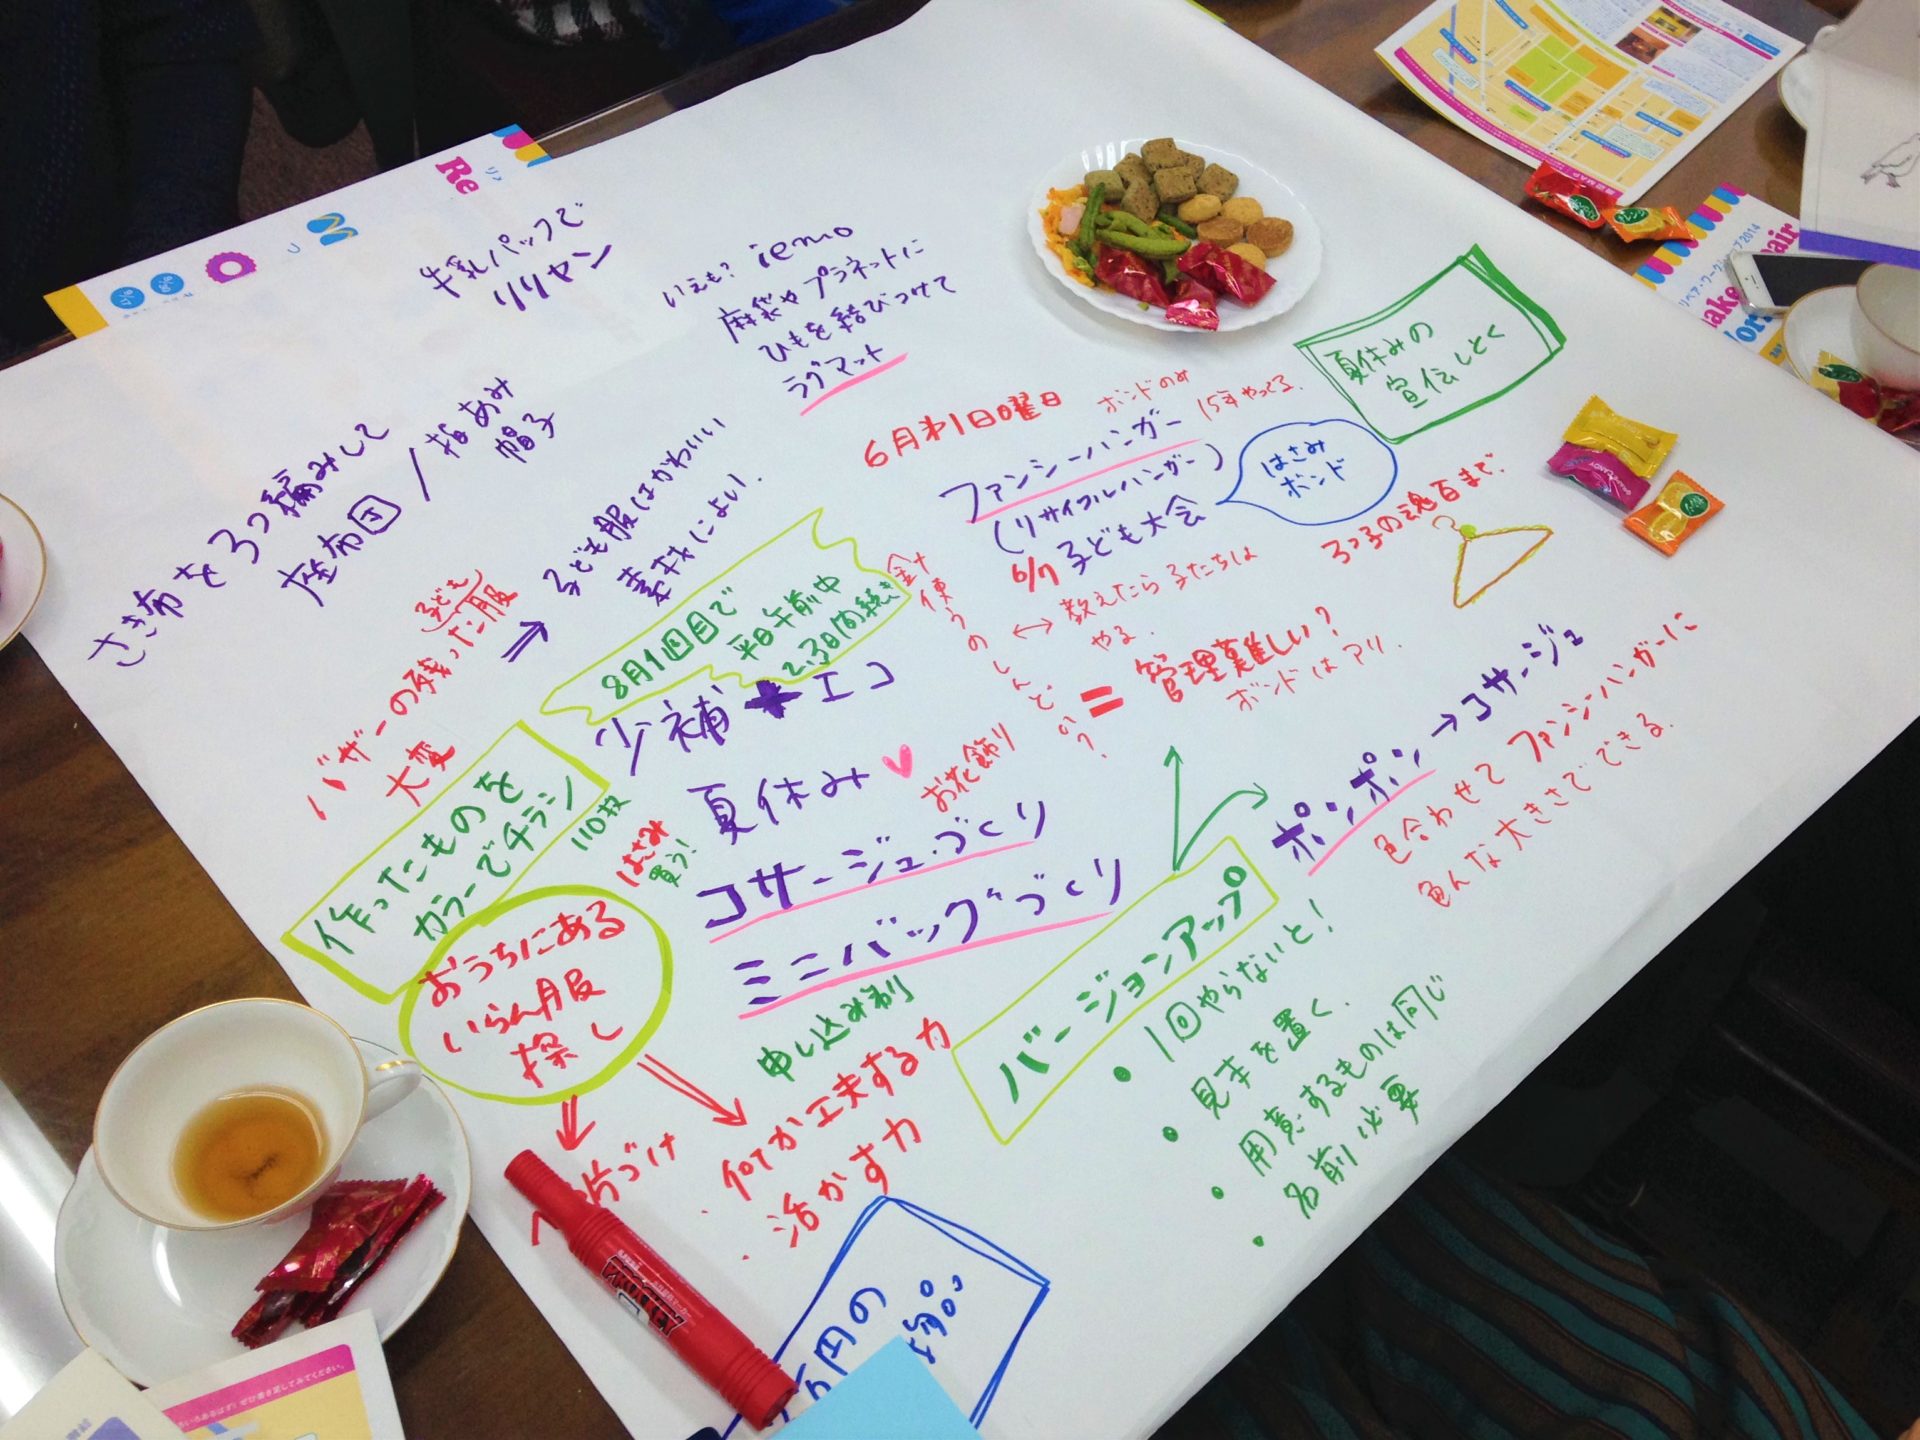 牛乳パックで
リリヤン
いえも? iemo
麻袋やプラネットに
ひもを結びつけて
ラグマット
さき布を3つ編みして
座布団/指あみ
帽子
子ども服はかわいい
素材によい!
子ども
バザーの残った服
大変
8月1週目で
平日午前中
2.3日間続き
6月第1日曜日
ボンドのみ
15年やってる.
ファンシーハンガー
(リサイクルハンガー)
6/7 子ども大会
はさみ
ボンド
夏休みの
宣伝しとく
3つ子の魂百まで.
教えたら子たちは
やる.
針使うのしんどい?
管理難しい?
ボンドはアリ.
少補★エコ
夏休み
お花飾り
コサージュづくり
ミニバッグづくり
申し込み制
作ったものを
カラーでチラシ
110枚
はさみ
買う!
おうちにある
いらん服
探し
片づけ
何か工夫する力
活かす力
ポンポン→コサージュ
色合わせてファンシーハンガーに
色んな大きさでできる.
バージョンアップ
1回やらないと!
見本を置く.
用意するものは同じ
名前必要
円の
Re
リペア・ワークショップ2014
PROCKEY